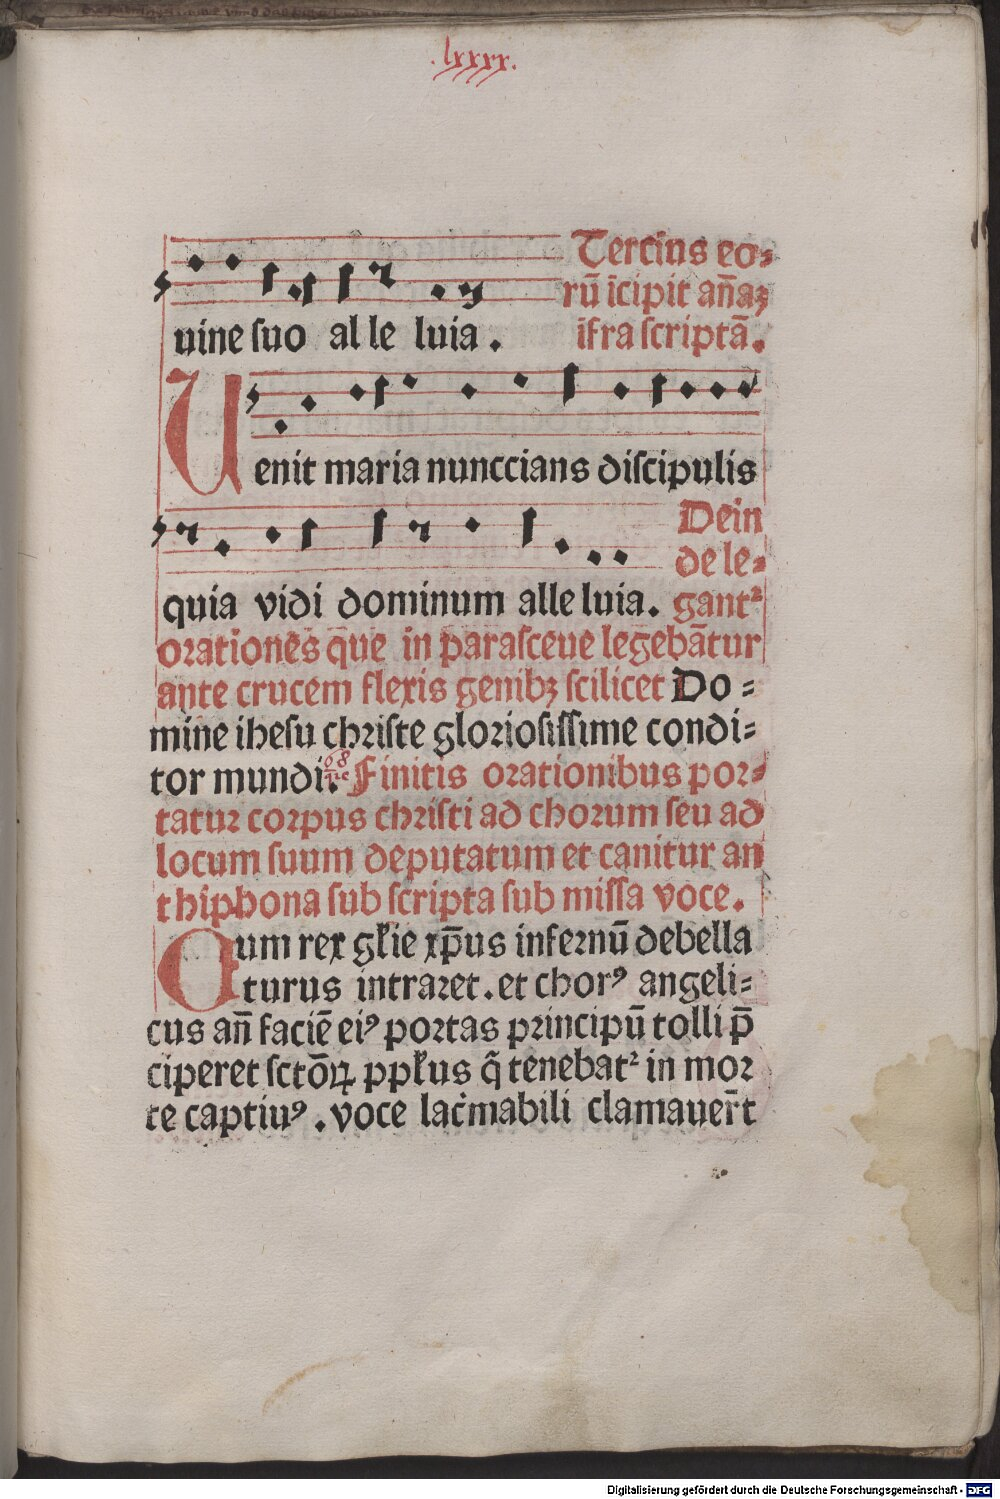 .lxxxx.
Tercius eo⸗
rū īcipit an̄aꝫ
uine suo al le luia . ifra scriptā.
Uenit maria nunccians discipulis
Dein
de le⸗
quia vidi dominum alle luia. gantᷣ
orationes que in parasceue legebātur
ante crucem flexis genibꝫ scilicet Do⸗
mine ihesu christe gloriosissime condi⸗
tor mundi. Finitis orationibus por⸗
tatur corpus christi ad chorum seu ad
locum suum deputatum et canitur an
thiphona sub scripta sub missa voce.
Cum rex gl̄ie xp̄us infernū debella
turus intraret. et chorꝰ angeli⸗
cus an̄ faciē eiꝰ portas principū tolli p̄
ciperet sctōꝝ ppl̄us q̄ tenebatᷣ in mor
te captiuꝰ . voce lac̄mabili clamauer̄t
Digitalisierung gefördert durch die Deutsche Forschungsgemeinschaft - DFG